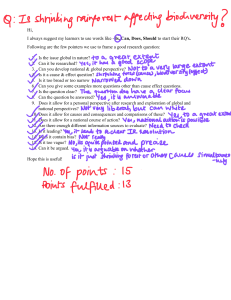 Q: Is shrinking rainforest affecting biodiversity?
Hi,
I always suggest my learners to use words like Is, Can, Does, Should to start their RQ's.
Following are the few pointers we use to frame a good research question:
1. Is the issue global in nature? to a great extent
2. Can it be researched? Yes, it has a good scope
3. Can you develop national & global perspective? Not to a very large extent
4. Is it a cause & effect question? Shrinking forest (cause), biodiversity (effect)
5. Is it too broad or too narrow Narrowed down
6. Can you give some examples more questions other than cause effect questions
7. Is the question clear? The question does have a clear focus
8. Can the question be answered? Yes, it is answerable
9. Does it allow for a personal perspective after research and exploration of global and
national perspectives? Not very liberal, but can write
10. Does it allow for causes and consequences and comparisons of these? Yes, to a great extent
11. Does it allow for a rational course of action? Yes, national action is possible
12. Are there enough different information sources to evaluate? Need to check
13. Is it leading? Yes, it leads to a clear IR resolution
14. Does it contain bias? Not really
15. Is it too vague? No, is quite pointed and precise
16. Can it be argued. Yes, it's arguable on whether
is it just shrinking forest or other causes simultaneously
Hope this is useful!
No. of points : 15
Points fulfilled : 13